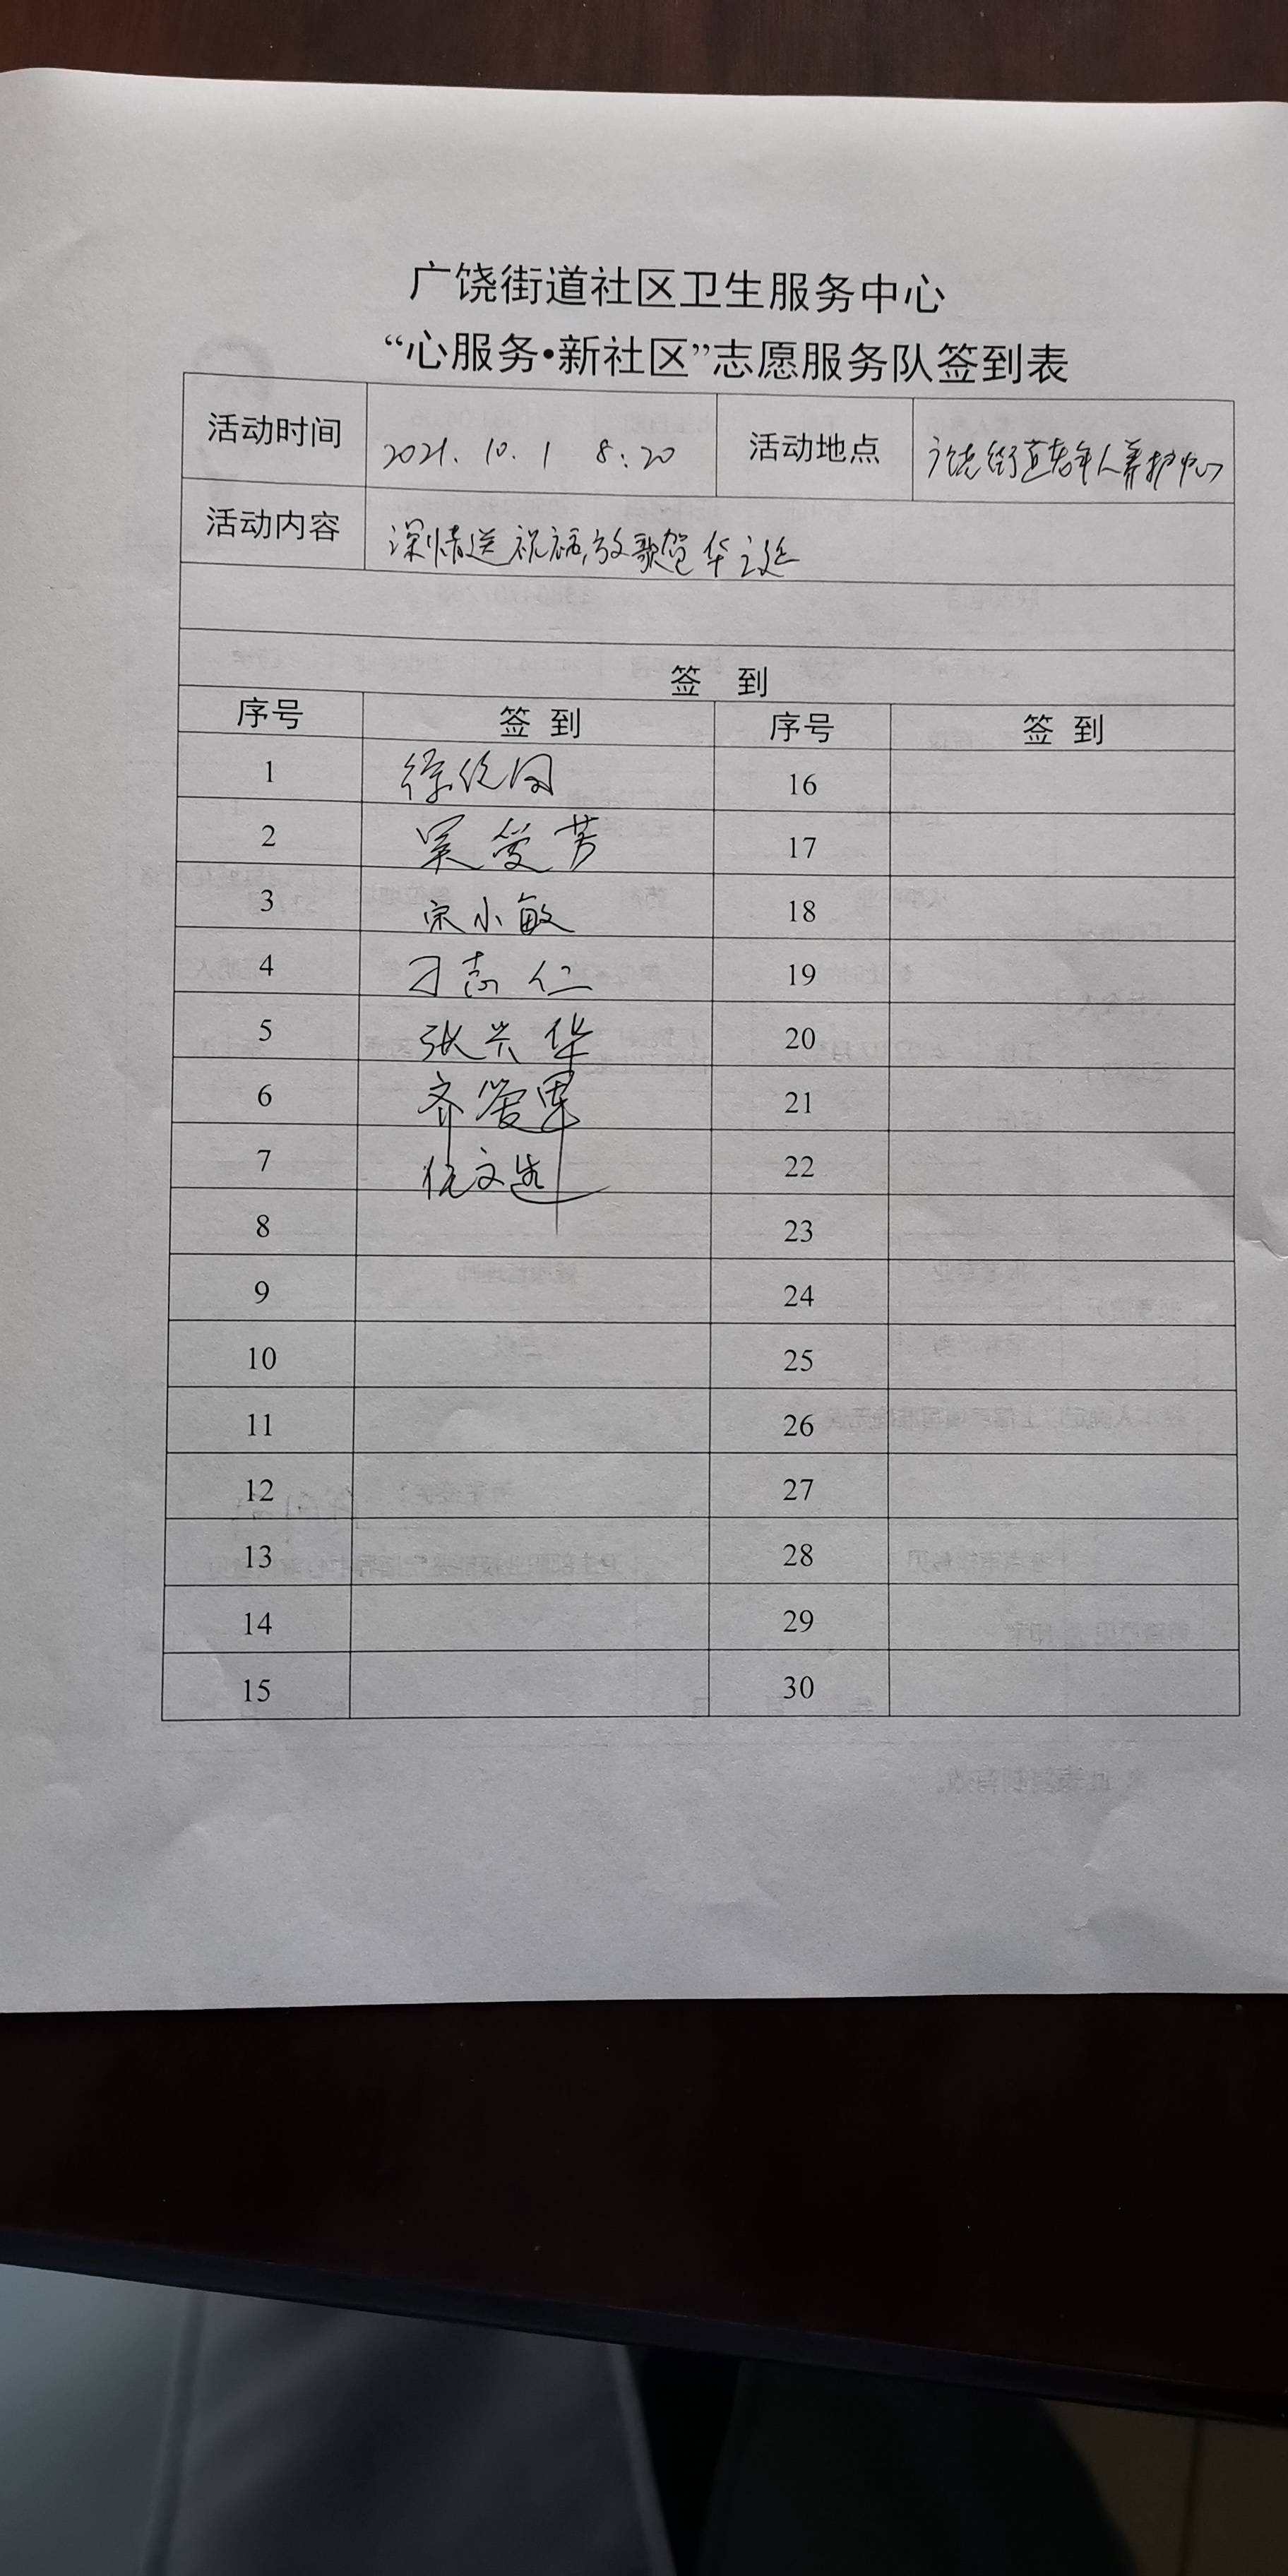 广饶街道社区卫生服务中心
“心服务•新社区”志愿服务队签到表
活动时间 2021.10.1 8:20 活动地点 广饶街道老年人养护中心
活动内容 深情送祝福,放歌贺华诞
签 到
序号 签 到 序号 签 到
1 徐 16
2 吴爱芳 17
3 宋小敏 18
4 刁志仁 19
5 张兴华 20
6 齐爱军 21
7 文 22
8 23
9 24
10 25
11 26
12 27
13 28
14 29
15 30